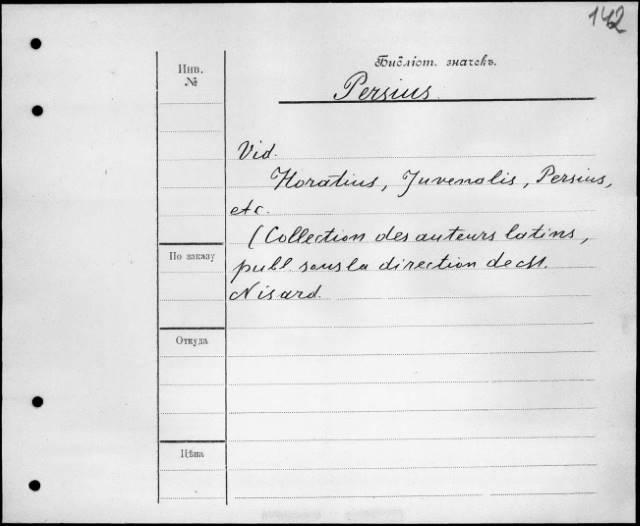 142
Инв.
№
Библіот. значекъ.
Persius.
Vid.
Horatius, Juvenalis, Persius,
etc.
(Collection des auteurs latins,
По заказу
publ. sous la direction de M.
Nisard.
Откуда
Цѣна